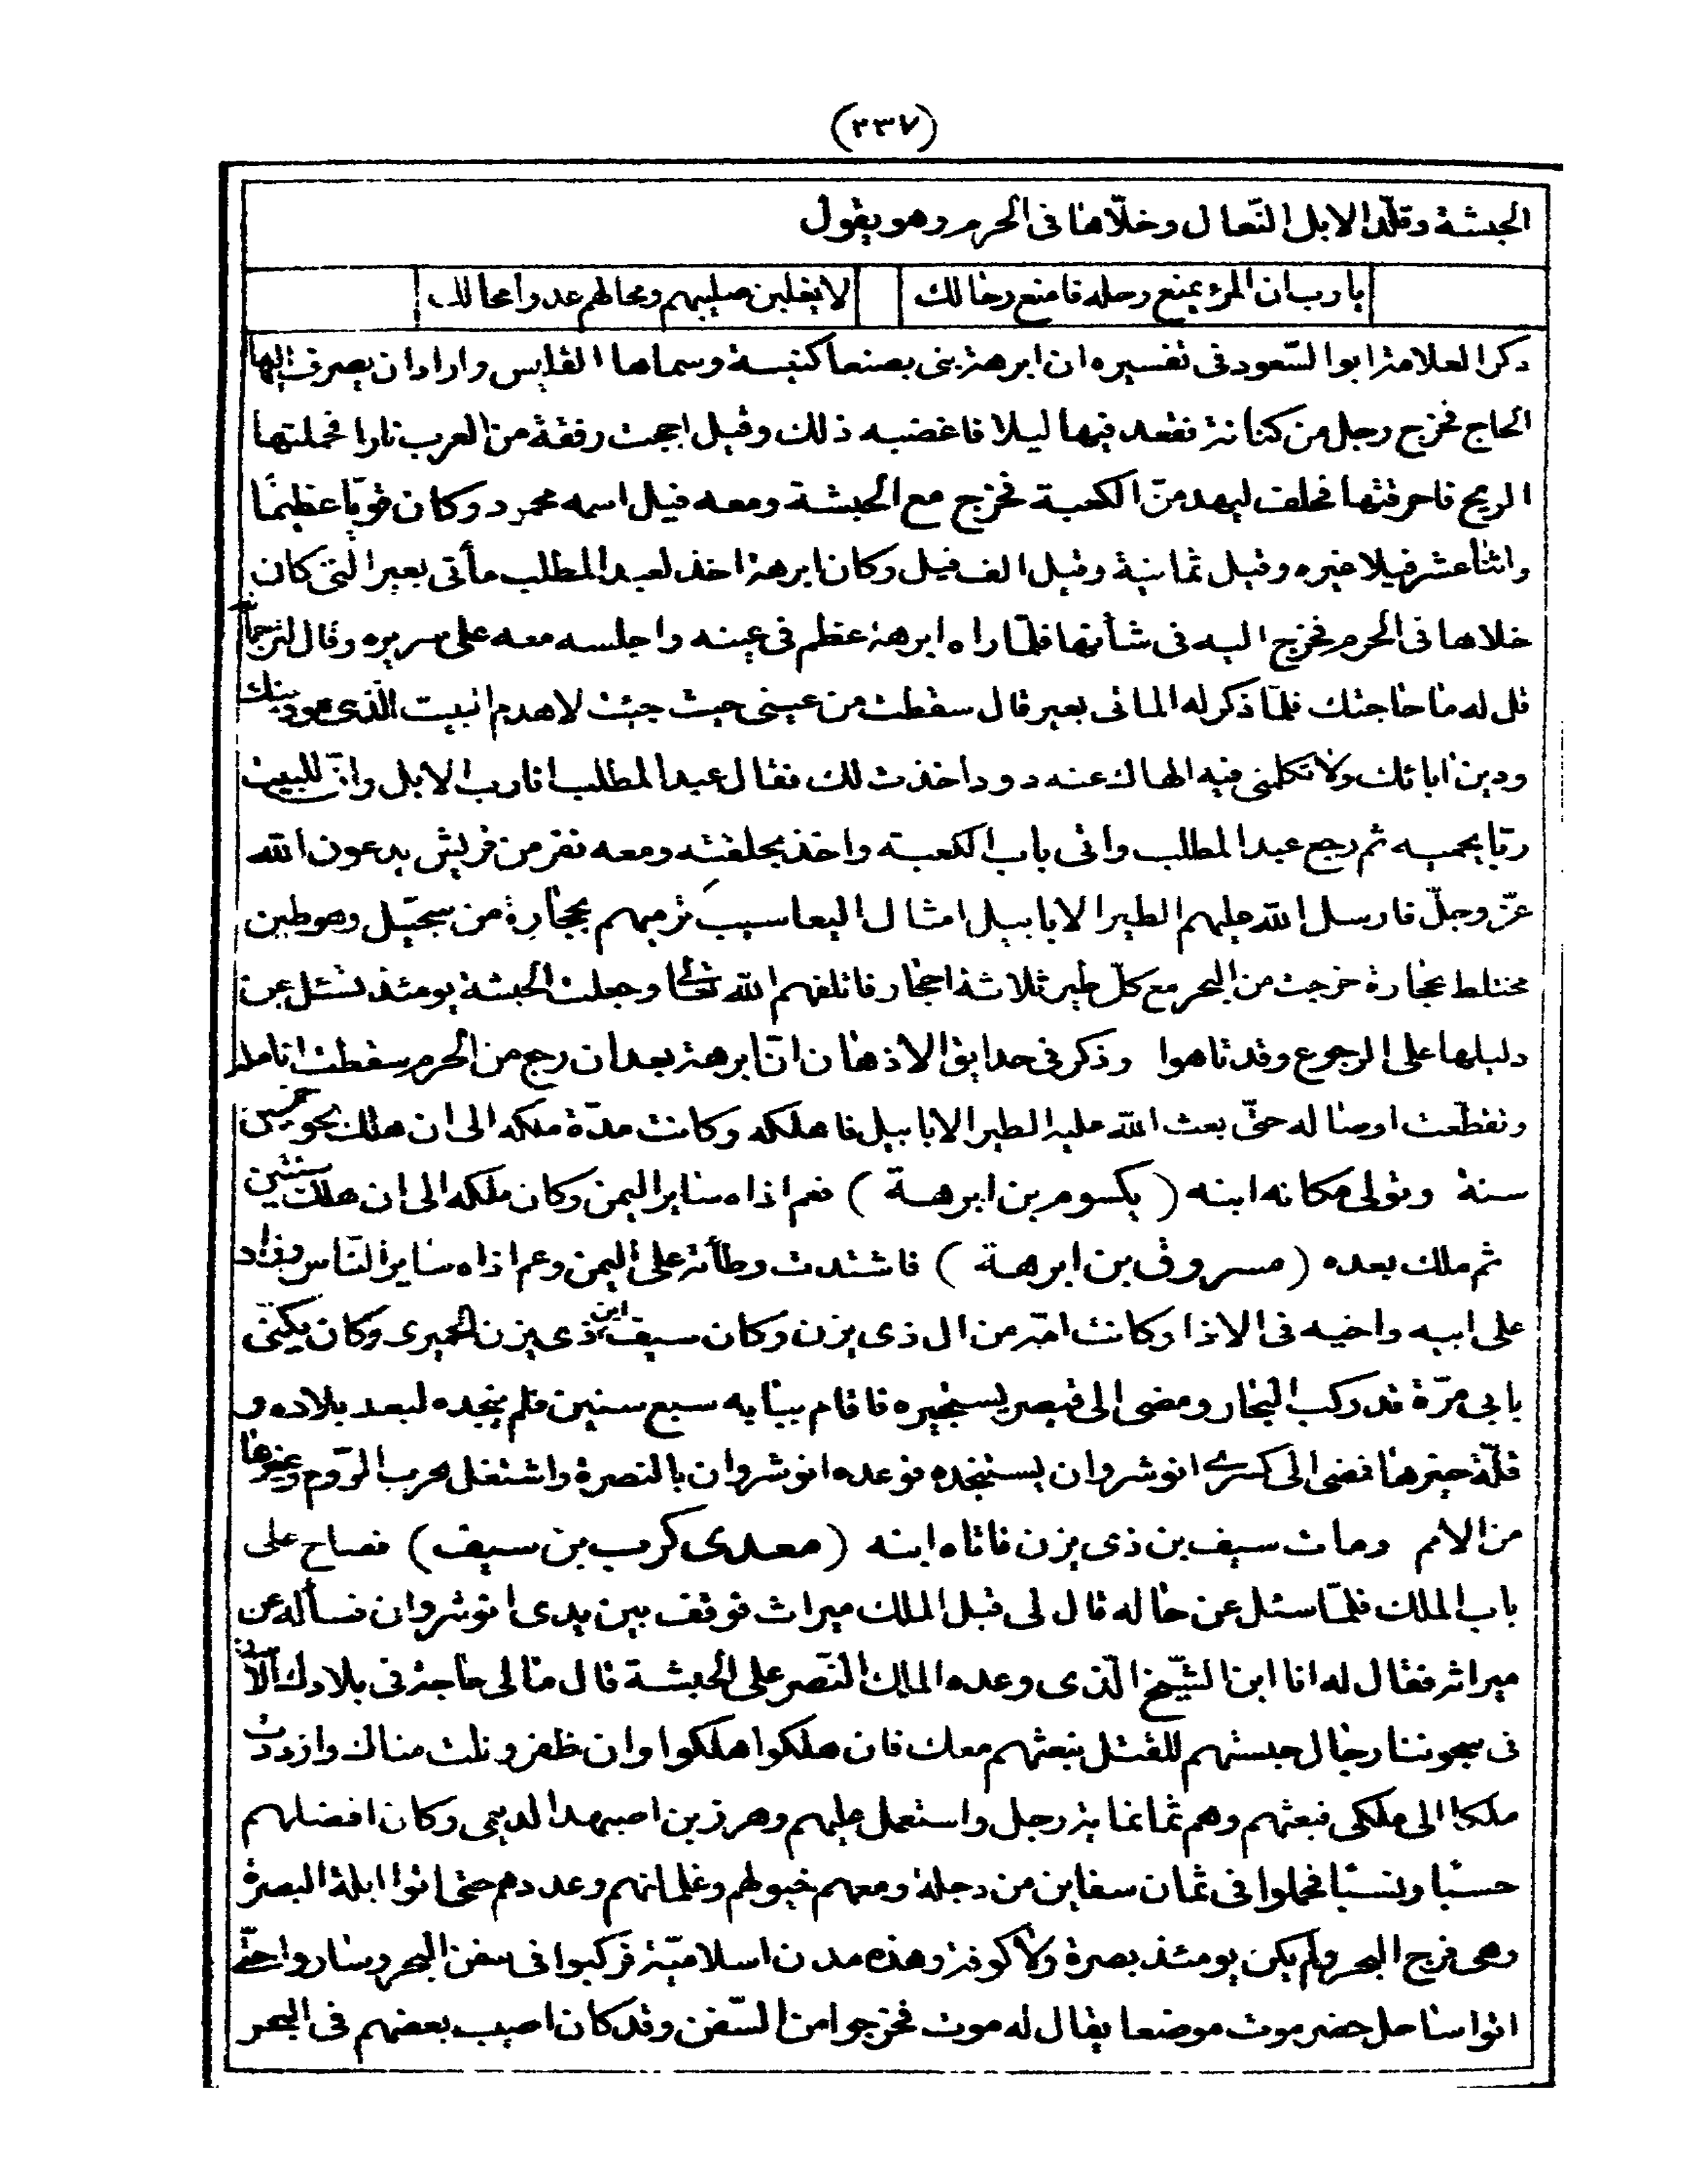 (٣٣٧)
الحبشة وقلّد الابل النّعال وخلّاها فى الحرم وهو يقول
يا رب ان المرء يمنع رحله فامنع رحالك لا يغلبن صليبهم ومحالهم عدوا محالك
ذكر العلامة ابو السّعود فى تفسيره ان ابرهة بنى بصنعا كنيسة وسماها القليس واراد ان يصرف اليها
الحاج فخرج رجل من كنانة فقعد فيها ليلا فاغضبه ذلك وقيل اججت رفقة من العرب نارا فحملتها
الريح فاحرقتها فحلف ليهدمنّ الكعبة فخرج مع الحبشة ومعه فيل اسمه محمود وكان قويّا عظيمًا
واثنا عشر فيلا غيره وقيل ثمانية وقيل الف فيل وكان ابرهة اخذ لعبد المطلب مأتى بعير التى كان
خلاها فى الحرم فخرج اليه فى شأنها فلمّا راه ابرهة عظم فى عينه واجلسه معه على سريره وقال لترجمانه
قل له ما حاجتك فلمّا ذكر له المأتى بعير قال سقطت من عينى حيث جيئت لاهدم البيت الّذى هو دينك
ودين ابائك ولا تكلمنى فيه الهاك عنه دود اخذت لك فقال عبد المطلب انا رب الابل وانّ للبيت
ربّا يحميه ثم رجع عبد المطلب واتى باب الكعبة واخذ بحلقته ومعه نفر من قريش يدعون اللّه
عزّ وجلّ فارسل اللّه عليهم الطير الابابيل امثال اليعاسيب ترميهم بحجارة من سجّيل وهو طين
مختلط بحجارة خرجت من البحر مع كلّ طير ثلاثة احجار فاتلفهم اللّه تعالى وجعلت الحبشة يومئذ تسئل عن
دليلها على الرجوع وقد تاهوا وذكر فى حدايق الاذهان انّ ابرهة بعد ان رجع من الحرم سقطت انامله
وتقطّعت اوصاله حتّى بعث اللّه عليه الطير الابابيل فاهلكه وكانت مدّة ملكه الى ان هلك نحو خمسين
سنة وتولى مكانه ابنه (يكسوم بن ابرهة) فعم اذاه ساير اليمن وكان ملكه الى ان هلك سنتين
ثم ملك بعده (مسروق بن ابرهة) فاشتدت وطأته على اليمن وعم اذاه ساير النّاس وزاد
على ابيه واخيه فى الاذا وكانت امّه من ال ذى يزن وكان سيف ابن ذى يزن الحميرى وكان يكنّى
بابى مرّة قد ركب البحار ومضى الى قيصر يستجيره فاقام ببابه سبع سنين فلم ينجده لبعد بلاده و
قلّة خيرها فمضى الى كسرى انوشروان يستنجده فوعده انوشروان بالنصرة واشتغل بحرب الرّوم وغيرها
من الامم ومات سيف بن ذى يزن فاتاه ابنه (معدى كرب بن سيف) فصاح على
باب الملك فلمّا سئل عن حاله قال لى قبل الملك ميراث فوقف بين يدى انوشروان فسأله عن
ميراثه فقال له انا ابن الشّيخ الّذى وعده الملك النّصر على الحبشة قال ما لى حاجة فى بلادك الا
فى سجوننا رجال حبستهم للقتل نبعثهم معك فان هلكوا هلكوا وان ظفرو نلت مناك وازددت
ملكا الى ملكى فبعثهم وهم ثمانماية رجل واستعمل عليهم وهرز بن اصبهد الديمى وكان افضلهم
حسبًا ونسبًا فحملوا فى ثمان سفاين من دجلة ومعهم خيولهم وغلمانهم وعددهم حتى اتوا ابلة البصرة
وهى فرج البحر ولم يكن يومئذ بصرة ولا كوفة وهذه مدن اسلاميّة فركبوا فى سفن البحر وساروا حتّى
اتوا ساحل حضرموت موضعا يقال له موث فخرجوا من السّفن وقد كان اصيب بعضهم فى البحر